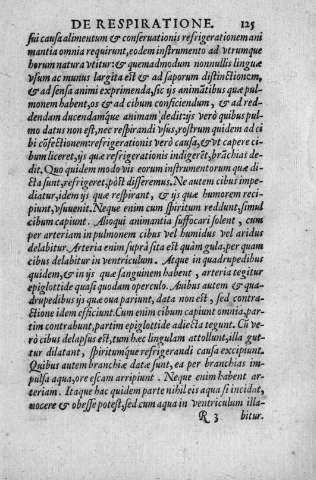 DE RESPIRATIONE. 125
sui causa alimentum & conseruationis refrigerationem ani
mantia omnia requirunt, eodem instrumento ad vtrumque
horum natura vtitur: & quemadmodum nonnullis linguæ
vsum ac munus largita est & ad saporum distinctionem,
& ad sensa animi exprimenda, sic ijs animãtibus quæ pul-
monem habent, os & ad cibum conficiendum, & ad red-
dendam ducendamque animam dedit: ijs verò quibus pul-
mo datus non est, nec respirandi vsus, rostrum quidem ad ci
bi cõfectionem: refrigerationis verò causa, & vt capere ci-
bum liceret, ijs quæ refrigerationis indigerẽt, brãchias de-
dit. Quo quidem modo vis eorum instrumentorum quæ di-
cta sunt, refrigeret, pòst disseremus. Ne autem cibus impe-
diatur, idem ijs quæ respirant, & ijs quæ humorem reci-
piunt, vsuuenit. Neque enim cum spiritum reddunt, simul
cibum capiunt. Alioqui animantia suffocari solent, cum
per arteriam in pulmonem cibus vel humidus vel aridus
delabitur. Arteria enim suprà sita est quàm gula, per quam
cibus delabitur in ventriculum. Atque in quadrupedibus
quidem, & in ijs quæ sanguinem habent, arteria tegitur
epiglottide quasi quodam operculo. Auibus autem & qua-
drupedibus ijs quæ oua pariunt, data non est, sed contra-
ctione idem efficiunt. Cum enim cibum capiunt omnia, par-
tim contrahunt, partim epiglottide adiecta tegunt. Cũ ve-
rò cibus delapsus est, tum hæc linguam attollunt, illa gut-
tur dilatant, spiritumque refrigerandi causa excipiunt.
Quibus autem branchiæ datæ sunt, ea per branchias im-
pulsa aqua, ore escam arripiunt. Neque enim habent ar-
teriam. Itaque hac quidem parte nihil eis aqua si incidat,
nocere & obesse potest, sed cum aqua in ventriculum illa-
R 3 bitur.